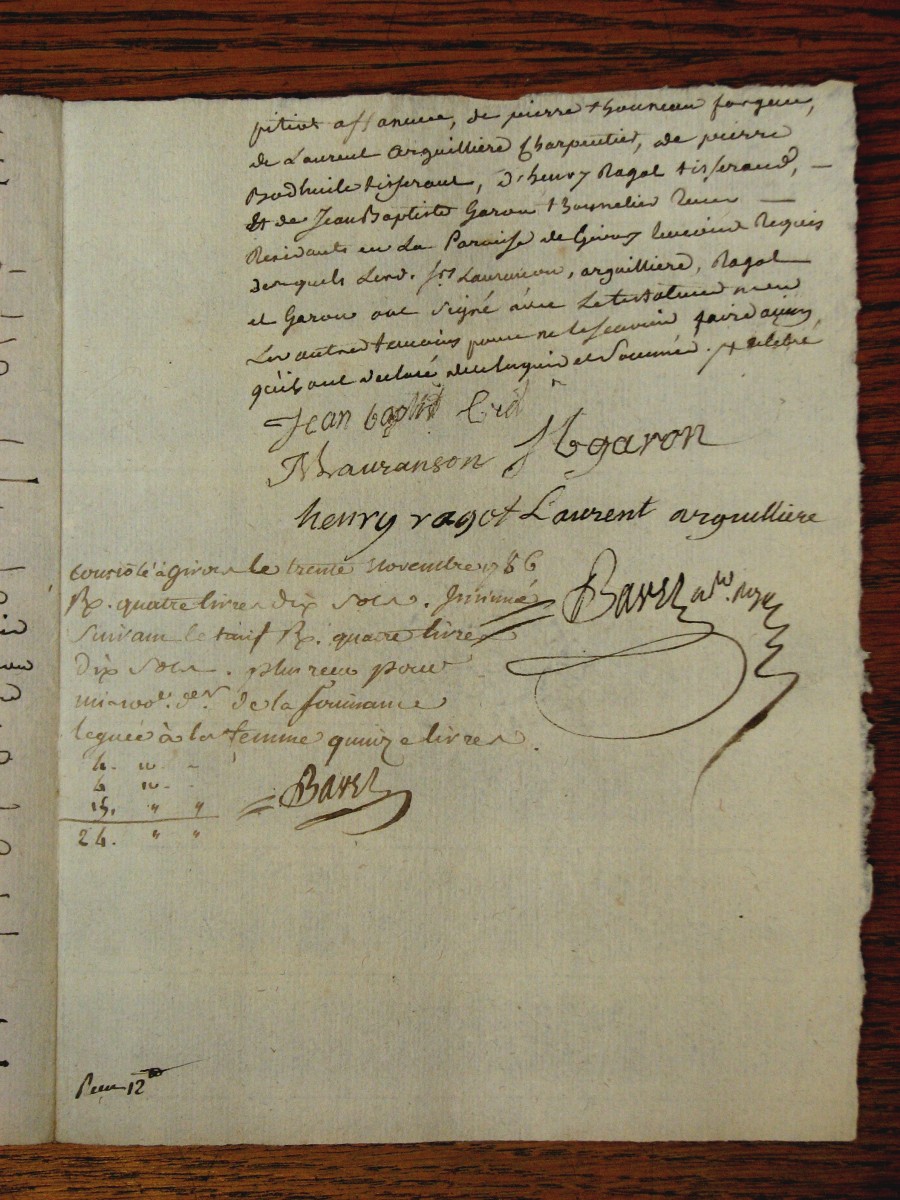 pitiot affaneur, de pierre thouneau forgeur,
de Laurent arguilliere Charpentier, de pierre
Bodhuile tisserant, d'henry Ragot tisserand, —
Et de Jean Baptiste Garon tonnelier —
Residants en La Paroisse de Givors temoins Requis
desquels Led. Laurançon, arguilliere, Ragot
et Garon ont signé avec Le testateur non
Les autres temoins pour ne le scavoir faire ainsy
qu'ils ont declaré de ce enquis et sommés.
Jean baptiste
Mauranson JB garon
henry ragot Laurent arguilliere
controlé à Givors le trente Novembre 1786
R. quatre livres dix sols. Insinué
suivant le tarif R. quatre livres
dix sols. plus reçu pour
de la
leguée à la femme quinze livres.
4. 10. -
4 10. -
15. " "
24. " "
Bavet
Bavet
12